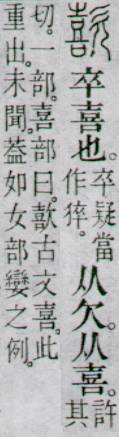 歖卒喜也。卒疑當作猝。从欠。从喜。許其
切。一部。喜部曰。歖古文喜。此
重出。未聞。葢如女部孌之例。